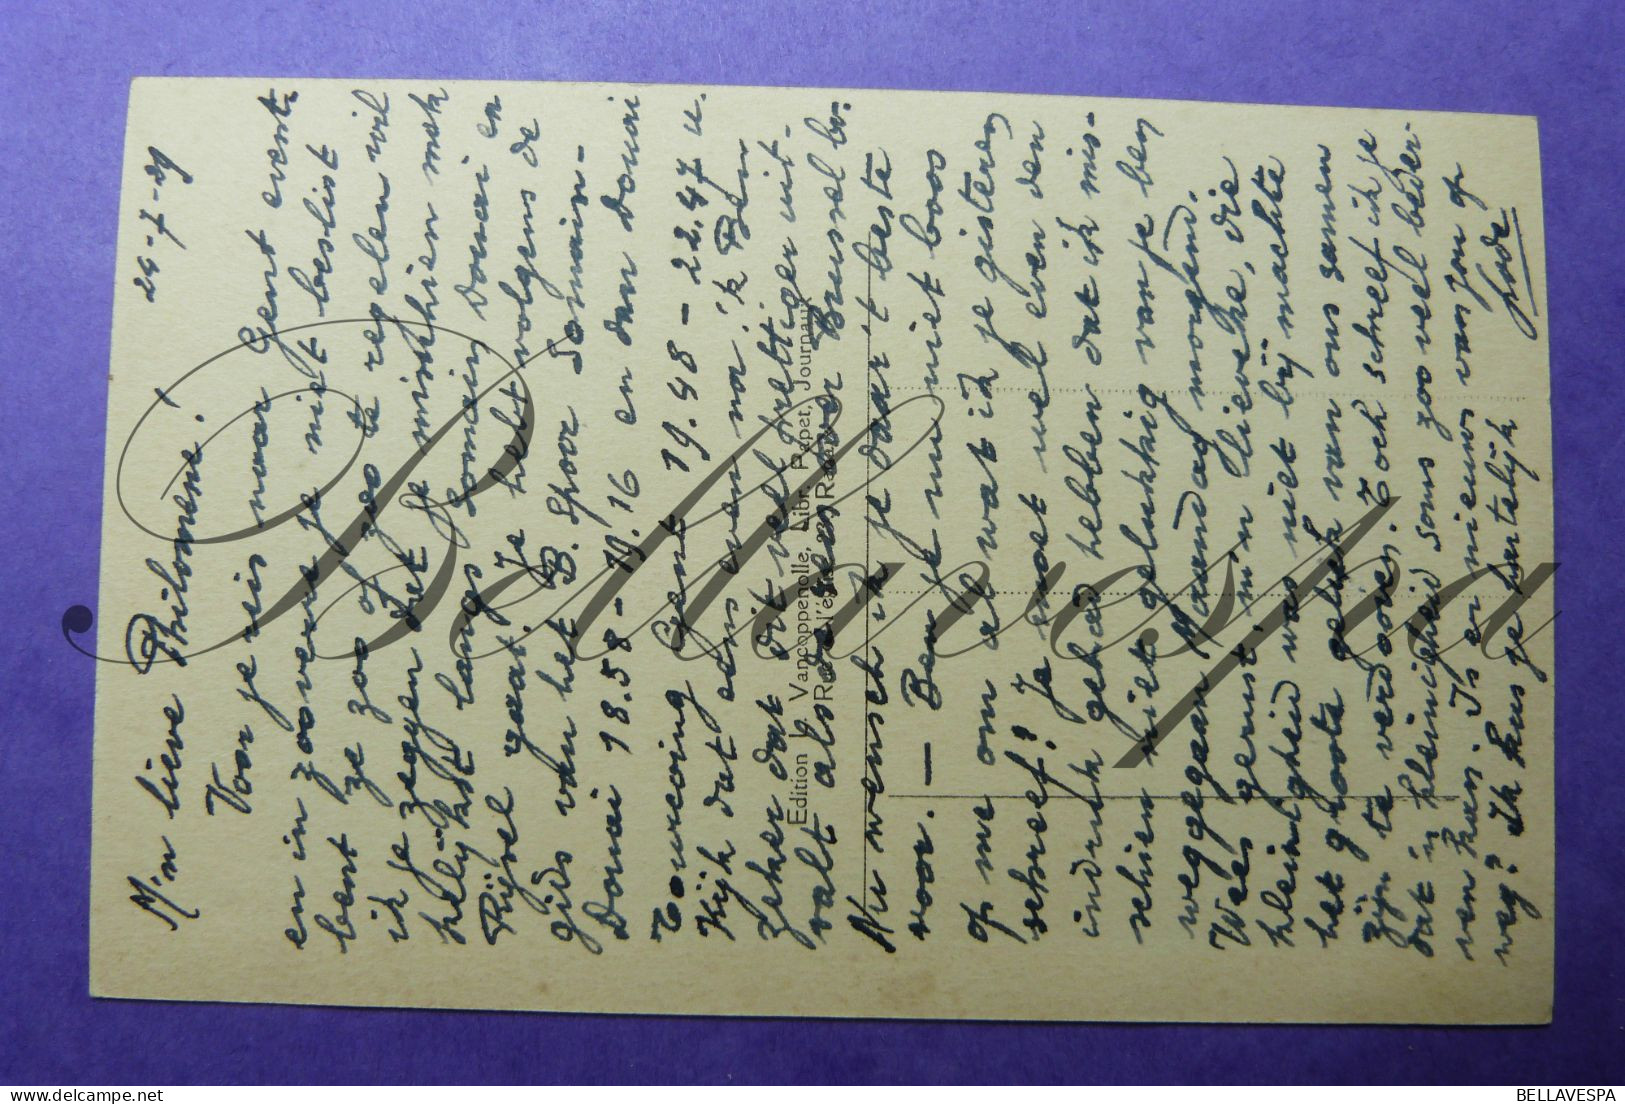 M'n lieve Philomene! 26-7-29
Voor je reis naar Gent event.
en in zooverre je niet beslist
bent ze zoo of zoo te regelen wil
ik je zeggen dat je misschien mak
kelijkst langs Somain, Douai en
Rijsel gaat. Je hebt volgens de
gids van het B. Spoor Somain-
Douai 18.58 - 19.16 en dan Douai
Tourcoing Gent 19.48 - 22.47 u.
Kijk dat eens even na. 'k Ben
zeker dat dit veel prettiger uit-
valt als de reis over Brussel
Nu wensch ik je daar 't beste
voor. — Ben je nu niet boos
op me om al wat ik je gisteren
schreef? Je moet wel even den
indruk gehad hebben dat ik mis-
schien niets gelukkig van je ben
weggegaan Maandag morgend.
Wees gerust, m'n lieveke, die
kleinigheid was niet bij machte
het groote geluk van ons samen
zijn te verdooven. Toch schreef ik je
dat in kleinigheid soms zoo veel
kan. Is er nieuws van
weg? Ik kus je hartelijk
Edition L. Vancoppenolle, Libr. Papet, Journaux
Bellavespa
BELLAVESPA